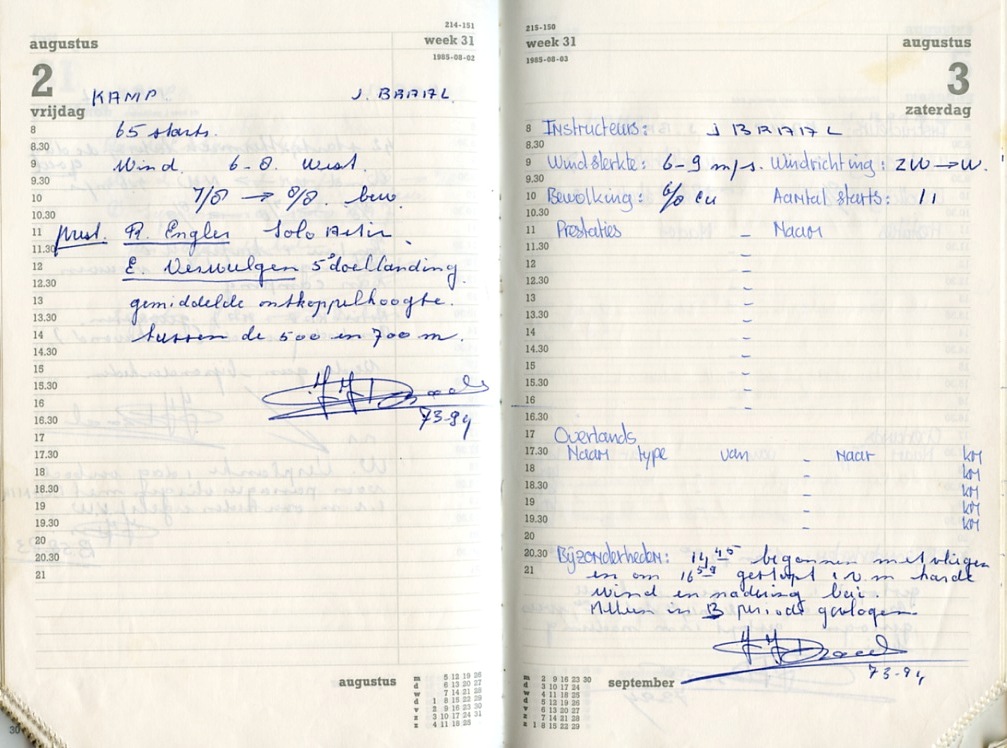 214-151
augustus
week 31
1985-08-02
2
vrijdag
KAMP. J. BRAAL.
8 65 starts.
8.30
9 Wind 6-8. West.
9.30
10 7/8 → 8/8. bew.
10.30
11 prest. R. Engler Solo
11.30
12 E. Verwulgen 5e doellanding
12.30
13 gemiddelde ontkoppelhoogte.
13.30
14 tussen de 500 en 700 m.
14.30
15
15.30
16
16.30 73-94
17
17.30
18
18.30
19
19.30
20
20.30
21
augustus
m 5 12 19 26
d 6 13 20 27
w 7 14 21 28
d 1 8 15 22 29
v 2 9 16 23 30
z 3 10 17 24 31
z 4 11 18 25
215-150
week 31
augustus
1985-08-03
3
zaterdag
8 Instructeurs: J BRAAL
8.30
9 Windsterkte: 6-9 m/s. Windrichting: ZW → W.
9.30
10 Bewolking: 6/8 cu Aantal starts: 11
10.30
11 Prestaties - Naam
11.30 -
12 -
12.30 -
13 -
13.30 -
14 -
14.30 -
15 -
15.30 -
16 -
16.30
17 Overlands
17.30 Naam type van - naar KM
18 - KM
18.30 - KM
19 - KM
19.30 - KM
20
20.30 Bijzonderheden: 14.45 begonnen met vliegen
21 en om 16.59 gestopt i.v.m harde
wind en nadering bui.
Alleen in B periode gevlogen.
73-94
september
m 2 9 16 23 30
d 3 10 17 24
w 4 11 18 25
d 5 12 19 26
v 6 13 20 27
z 7 14 21 28
z 1 8 15 22 29